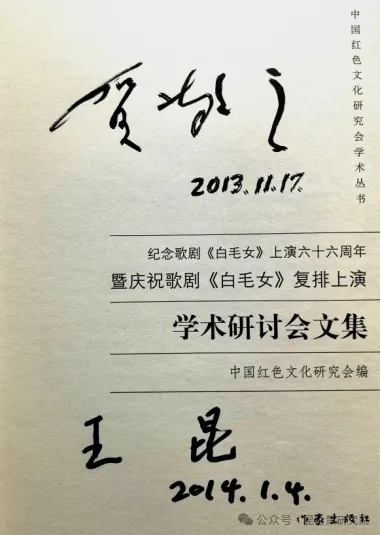 中国红色文化研究会学术丛书
贺敬之
2013.11.17.
纪念歌剧《白毛女》上演六十六周年
暨庆祝歌剧《白毛女》复排上演
学术研讨会文集
中国红色文化研究会编
王昆
2014.1.4.
作家出版社
公众号